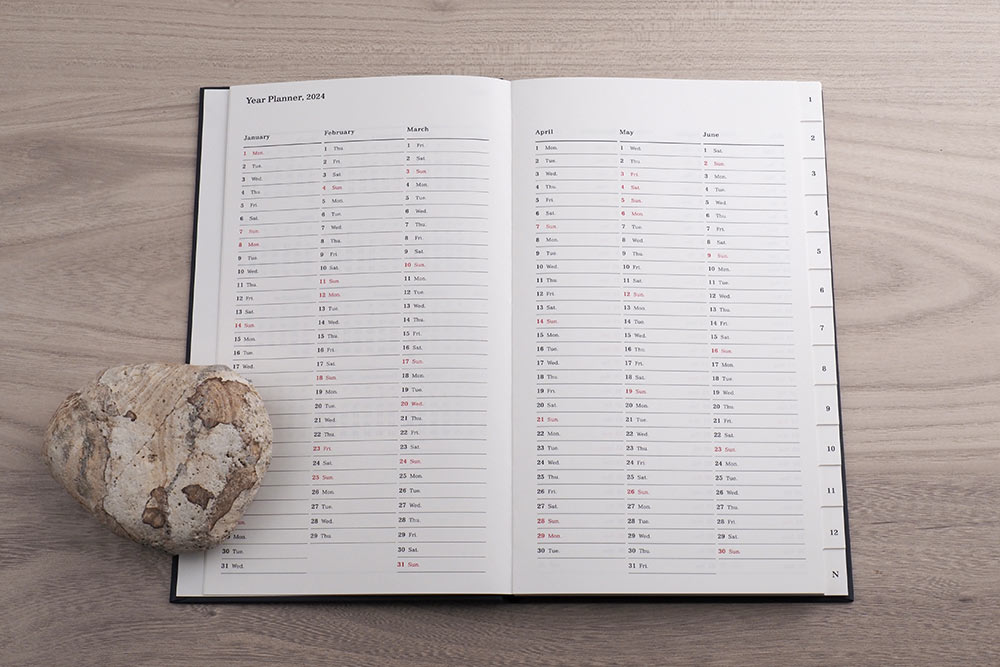 Year Planner, 2024
January
1 Mon.
2 Tue.
3 Wed.
4 Thu.
5 Fri.
6 Sat.
7 Sun.
8 Mon.
9 Tue.
10 Wed.
11 Thu.
12 Fri.
13 Sat.
14 Sun.
15 Mon.
16 Tue.
17 Wed.
30 Tue.
31 Wed.
February
1 Thu.
2 Fri.
3 Sat.
4 Sun.
5 Mon.
6 Tue.
7 Wed.
8 Thu.
9 Fri.
10 Sat.
11 Sun.
12 Mon.
13 Tue.
14 Wed.
15 Thu.
16 Fri.
17 Sat.
18 Sun.
19 Mon.
20 Tue.
21 Wed.
22 Thu.
23 Fri.
24 Sat.
25 Sun.
26 Mon.
27 Tue.
28 Wed.
29 Thu.
March
1 Fri.
2 Sat.
3 Sun.
4 Mon.
5 Tue.
6 Wed.
7 Thu.
8 Fri.
9 Sat.
10 Sun.
11 Mon.
12 Tue.
13 Wed.
14 Thu.
15 Fri.
16 Sat.
17 Sun.
18 Mon.
19 Tue.
20 Wed.
21 Thu.
22 Fri.
23 Sat.
24 Sun.
25 Mon.
26 Tue.
27 Wed.
28 Thu.
29 Fri.
30 Sat.
31 Sun.
April
1 Mon.
2 Tue.
3 Wed.
4 Thu.
5 Fri.
6 Sat.
7 Sun.
8 Mon.
9 Tue.
10 Wed.
11 Thu.
12 Fri.
13 Sat.
14 Sun.
15 Mon.
16 Tue.
17 Wed.
18 Thu.
19 Fri.
20 Sat.
21 Sun.
22 Mon.
23 Tue.
24 Wed.
25 Thu.
26 Fri.
27 Sat.
28 Sun.
29 Mon.
30 Tue.
May
1 Wed.
2 Thu.
3 Fri.
4 Sat.
5 Sun.
6 Mon.
7 Tue.
8 Wed.
9 Thu.
10 Fri.
11 Sat.
12 Sun.
13 Mon.
14 Tue.
15 Wed.
16 Thu.
17 Fri.
18 Sat.
19 Sun.
20 Mon.
21 Tue.
22 Wed.
23 Thu.
24 Fri.
25 Sat.
26 Sun.
27 Mon.
28 Tue.
29 Wed.
30 Thu.
31 Fri.
June
1 Sat.
2 Sun.
3 Mon.
4 Tue.
5 Wed.
6 Thu.
7 Fri.
8 Sat.
9 Sun.
10 Mon.
11 Tue.
12 Wed.
13 Thu.
14 Fri.
15 Sat.
16 Sun.
17 Mon.
18 Tue.
19 Wed.
20 Thu.
21 Fri.
22 Sat.
23 Sun.
24 Mon.
25 Tue.
26 Wed.
27 Thu.
28 Fri.
29 Sat.
30 Sun.
1
2
3
4
5
6
7
8
9
10
11
12
N